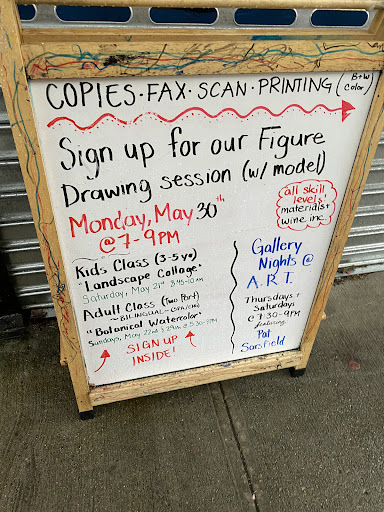 COPIES · FAX · SCAN · PRINTING (B+W Color)
Sign up for our Figure
Drawing session (w/ model)
Monday, May 30th
@ 7-9PM
all skill
levels!
materials +
wine inc.
Kids Class (3-5yo)
"Landscape Collage"
Saturday, May 21st 8:45-10 AM
Adult Class (Two Part)
~BILINGUAL-
"Botanical Watercolor"
Sundays, May 22nd & 29th @ 5:30-7PM
SIGN UP
INSIDE!
Gallery
Nights @
A.R.T.
Thursdays +
Saturdays
@ 7:30-9PM
featuring
Pat
Sarsfield